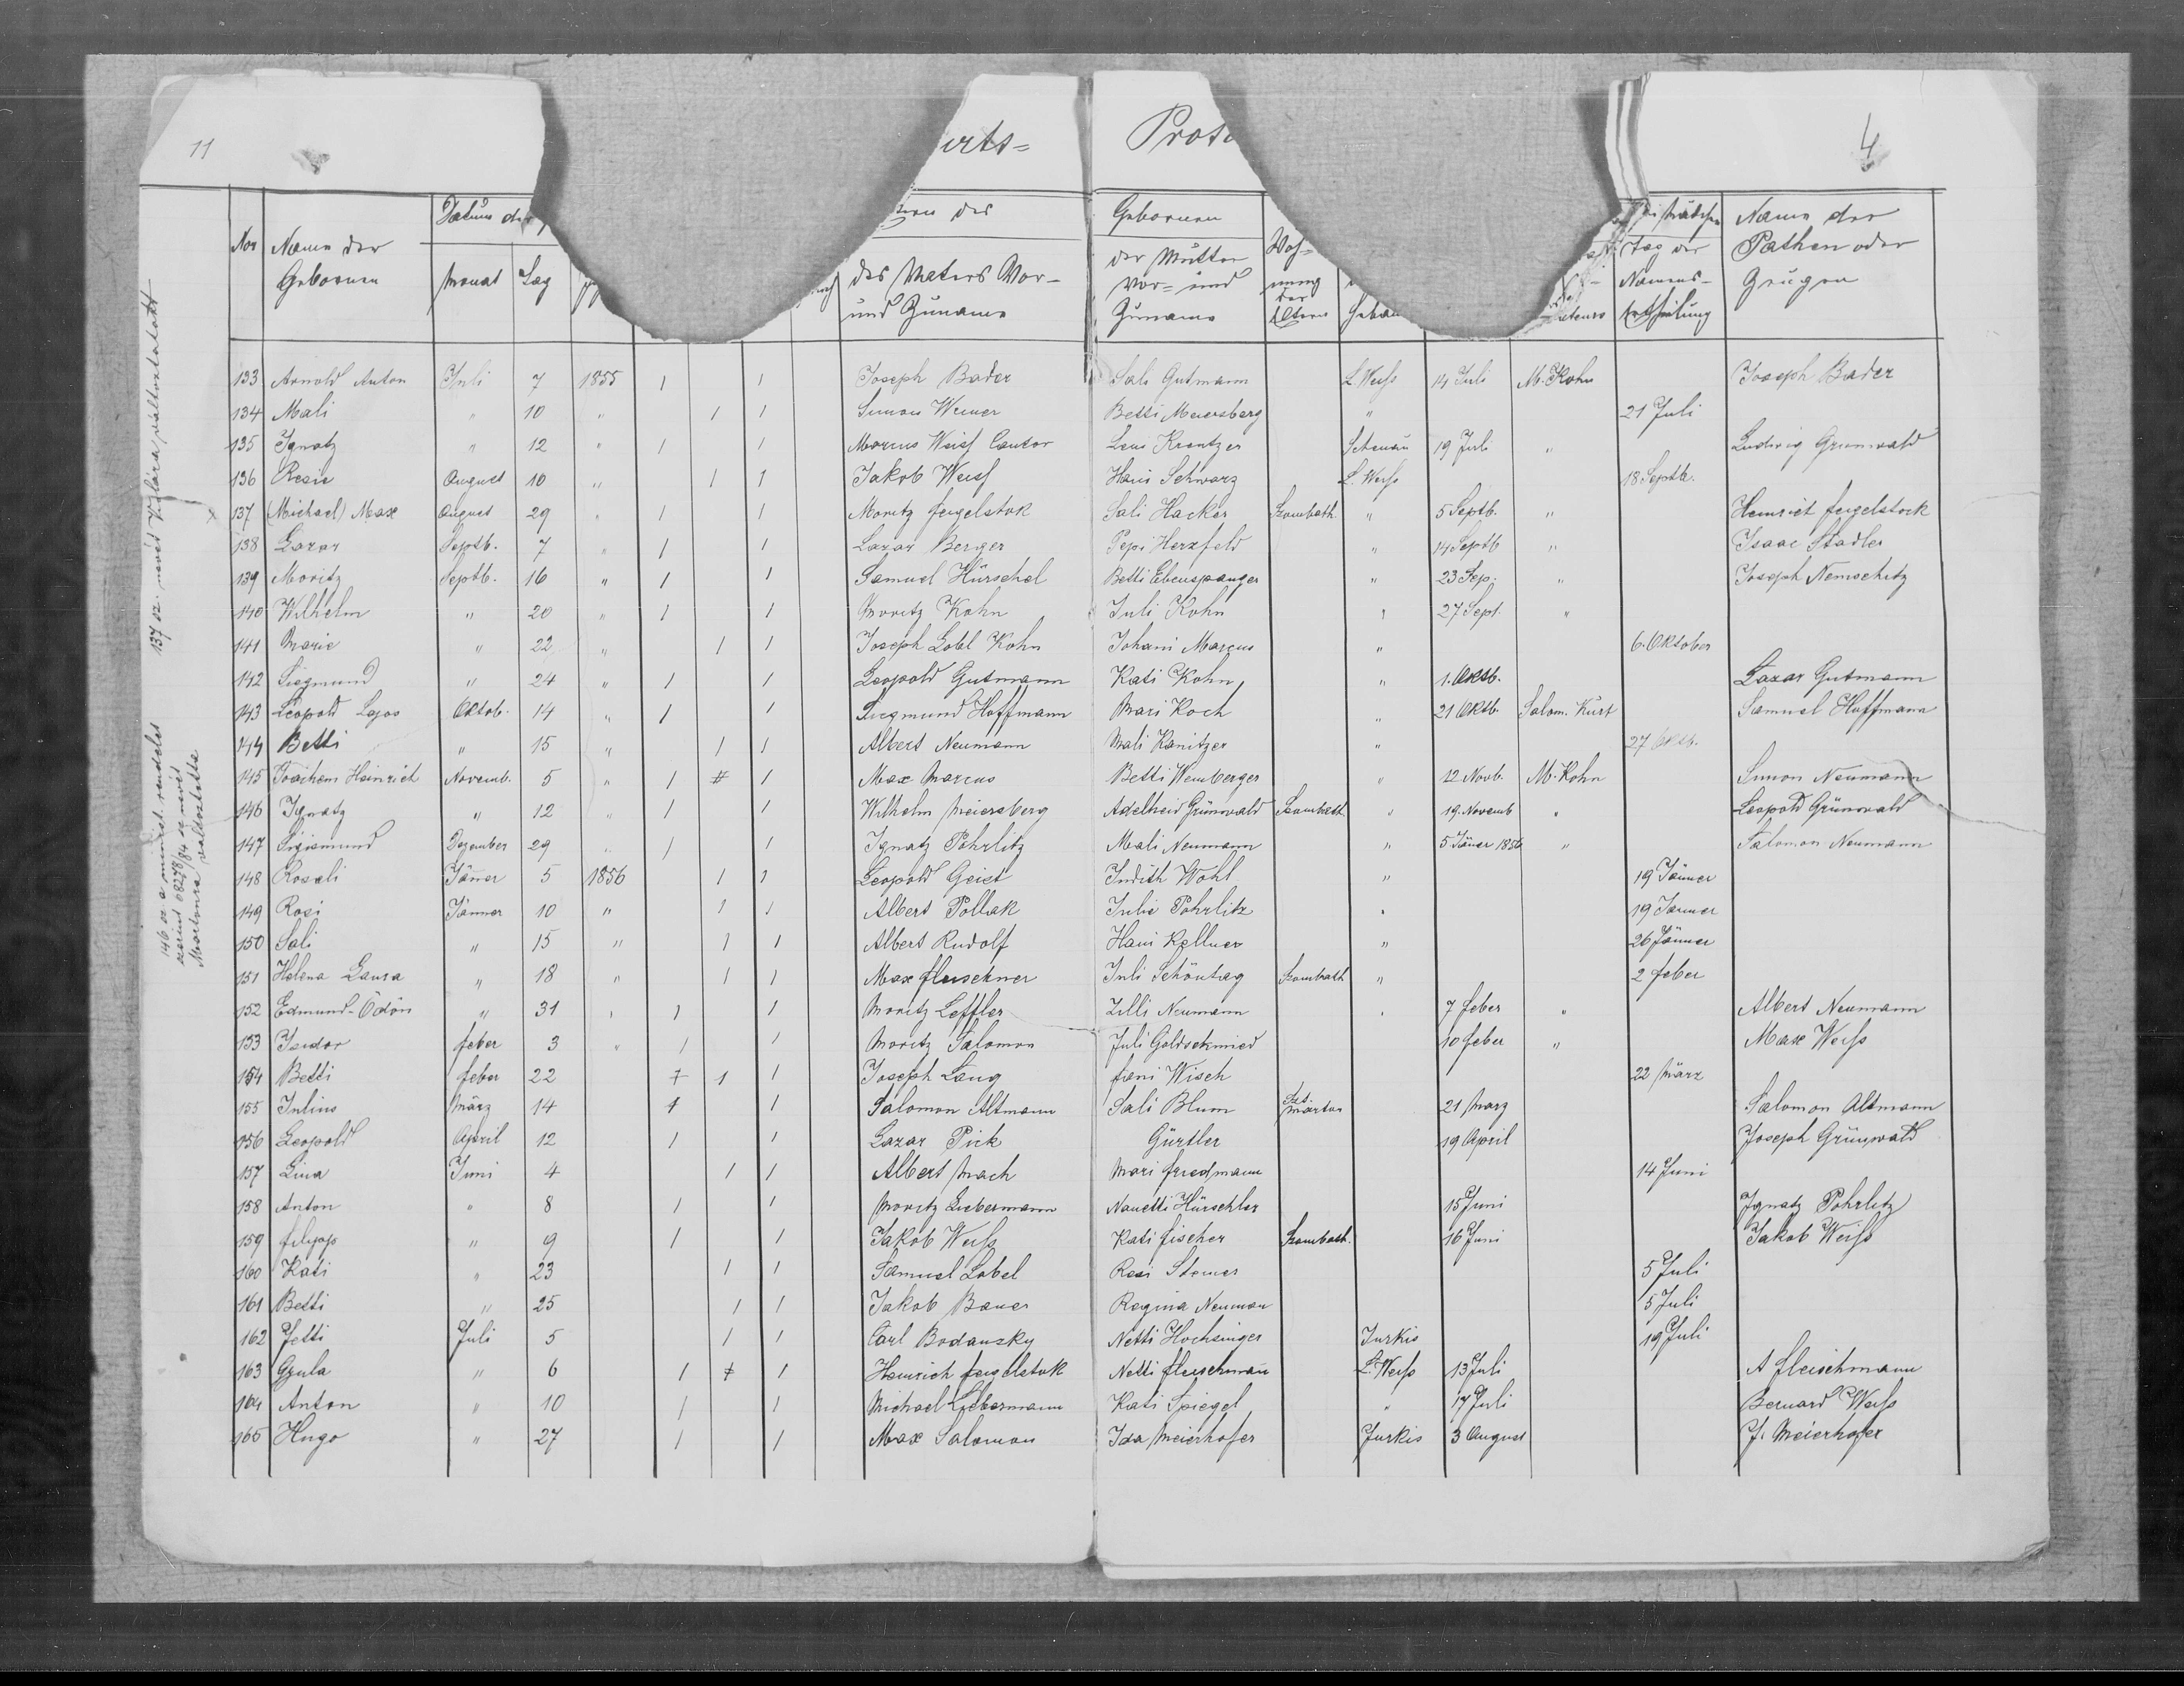 11
4
Prot
Nos
Name der
Gebornen
Datum der
Monat
Tag
des Vaters Vor-
und Zuname
Gebornen
der Mutter
Vor- und
Zuname
Woh-
nung
der
Eltern
Tag der
Namens-
ertheilung
Name der
Pathen oder
Zeugen
133 Arnold Anton Juli 7 1855 1 1 Joseph Bader Sali Gutmann L. Weiss 14 Juli M. Kohn Joseph Bader
134 Mali " 10 " 1 1 Simon Weiner Betti Meiersberg " 21 Juli
135 Ignatz " 12 " 1 1 Marcus Weiss Cantor Leni Krautzer 19 Juli " Ludwig Grunwald
136 Resie August 10 " 1 1 Jakob Weiss Hani Schwarz L. Weiss 18 Septb.
137 (Michael) Max August 29 " 1 1 Moritz feigelstok Sali Hacker Szombath. " 5 Septb. " Heinrich feigelstock
138 Lazar Septb. 7 " 1 1 Lazar Berger Pepi Herzfeld " 14 Septb " Isaac Stadler
139 Moritz Septb. 16 " 1 1 Samuel Hürschel Betti Ebenspanger " 23 Sep. " Joseph Nemschitz
140 Wilhelm " 20 " 1 1 Moritz Kohn Juli Kohn " 27 Sept. "
141 Marie " 22 " 1 1 Joseph Löbl Kohn Johani Marcus " 6. Oktober
142 Siegmund " 24 " 1 1 Leopold Gutmann Kati Kohn " 1. Oktb. Lazar Gutmann
143 Leopold Lajos Oktob. 14 " 1 1 Siegmund Hoffmann Mari Koch " 21 Oktb. Salom. Kurt Samuel Hoffmann
144 Betti " 15 " 1 1 Albert Neumann Mali Kanitzer " 27 Oktb.
145 Joachem Heinrich Novemb. 5 " 1 # 1 Max Marcus Betti Weinberger " 12 Novb. M. Kohn Simon Neumann
146 Ignatz " 12 " 1 1 Wilhelm Meiersberg Adelheid Grünwald Szombath " 19. Novemb " Leopold Grünwald
147 Sigismund Dezember 29 " 1 1 Ignatz Pohrlitz Mali Neumann " 5 Jäner 1856 " Salomon Neumann
148 Rosali Jäner 5 1856 1 1 Leopold Geist Judith Wohl " 19 Jänner
149 Rosi Jänner 10 " 1 1 Albert Pollak Julie Pohrlitz " 19 Janner
150 Sali " 15 " 1 1 Albert Rudolf Hani Kellner " 26 Jänner
151 Helena Laura " 18 " 1 1 Max fleischner Juli Schöntag Szombath " 2 feber
152 Edmund-Ödön " 31 " 1 1 Moritz Leffler Zilli Neumann " 7 feber " Albert Neumann
153 Isidor feber 3 " 1 1 Moritz Salomon Juli Goldschmied 10 feber " Max Weiss
154 Betti feber 22 1 1 Joseph Lang fani Wisch 22 März
155 Julius März 14 1 1 Salomon Altmann Sali Blum Szt. Marton 21 Marz Salomon Altmann
156 Leopold April 12 1 1 Lazar Pick Gürtler 19 April Joseph Grünwald
157 Lina Juni 4 1 1 Albert Mach Mari friedmann 14 Juni
158 Anton " 8 1 1 Moritz Liebermann Nanetti Hürschler 15 Juni Ignatz Pohrlitz
159 filipp " 9 1 1 Jakob Weiss Kati fischer Szombath. 16 Juni Jakob Weiss
160 Kati " 23 1 1 Samuel Lobel Resi Steiner 5 Juli
161 Betti " 25 1 1 Jakob Bauer Regina Neuman 5 Juli
162 Jetti Juli 5 1 1 Carl Bodanzky Netti Hochsinger Jurkis 19 Juli
163 Gyula " 6 1 # 1 Heinrich feigelstok Netti fleischman L. Weiss 13 Juli A fleischmann
164 Anton " 10 1 1 Michael Liebermann Kati Spiegel " 17 Juli Bernard Weiss
165 Hugo " 27 1 1 Max Salomon Ida Meierhofer Jurkis 3 August J. Meierhofer
137 sz. nevét
146 sz a minist. rendelet